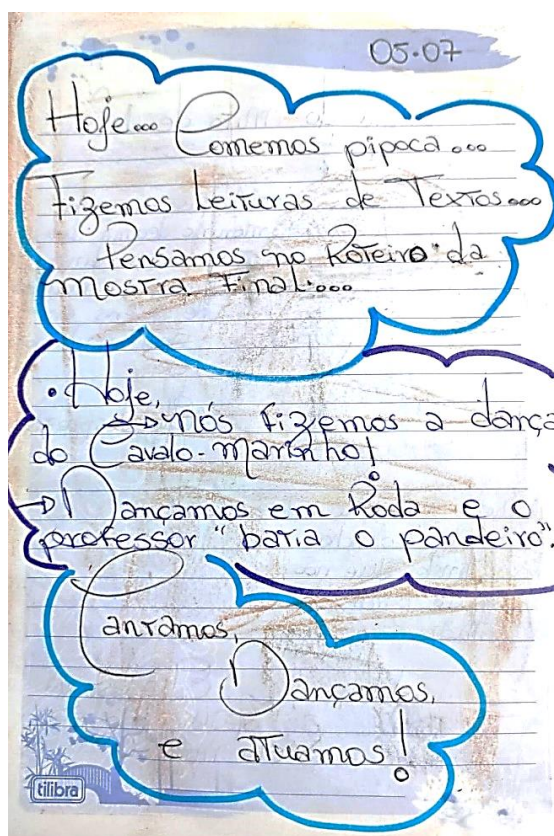 05.07
Hoje... Comemos pipoca...
Fizemos Leituras de Textos...
Pensamos no Roteiro da
mostra Final....
. Hoje,
→ nós fizemos a dança
do Cavalo-marinho!
→ Dançamos em Roda e o
professor "batia o pandeiro".
Cantamos,
Dançamos,
e atuamos!
tilibra